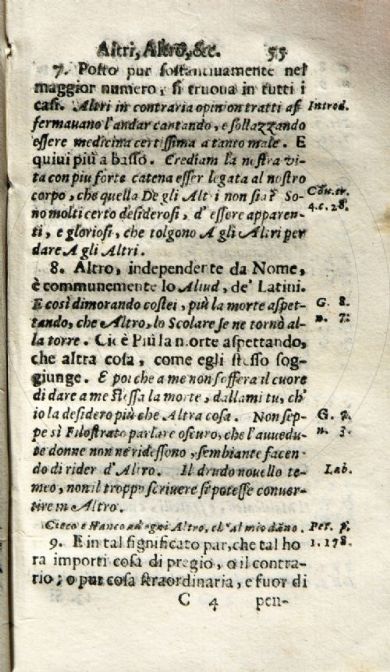 Altri, Altro, &c. 55
7. Posto pur sostantiuamente nel
maggior numero, si truoua in tutti i
casi. Altri in contraria opinion tratti af Introd.
fermauano l'andar cantando, e sollazzando
essere medicina certissima a tanto male. E
quiui più a basso. Crediam la nostra vi-
ta con piu forte catena esser legata al nostro
corpo, che quella De gli Altri non sia? So- Con. ter.
no molti certo desiderosi, d'essere apparen- 4. c. 28.
ti, e gloriosi, che tolgono A gli Altri per
dare A gli Altri.
8. Altro, independente da Nome,
è communemente lo Aliud, de' Latini.
E così dimorando costei, più la morte aspet- G. 8.
tando, che Altro, lo Scolare se ne tornò al- n. 7.
la torre. Cioè Più la morte aspettando,
che altra cosa, come egli stesso sog-
giunge. E poi che a me non soffera il cuore
di dare a me stessa la morte, dallami tu, ch'
io la desidero più che Altra cosa. Non sep-
pe sì Filostrato parlare oscuro, che l'auuedu- n. 3.
te donne non ne ridessono, sembiante facen-
do di rider d'Altro. Il drudo nouello te- Lab.
meo, non il troppo scriuere si potesse conuer-
tire in Altro.
Cieco e stanco ad ogni Altro, ch'al mio dãno. Per. p.
9. E in tal significato par, che tal ho 1. 178.
ra importi cosa di pregio, o il contra-
rio; o pur cosa straordinaria, e fuor di
C 4 pen-